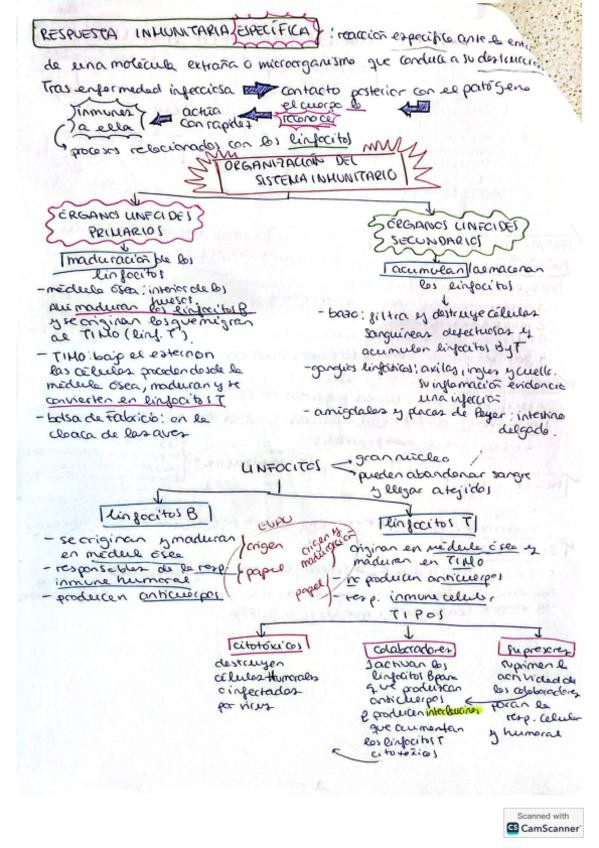 RESPUESTA INMUNITARIA ESPECÍFICA : reacción específica ante la
de una molécula extraña o microorganismo que conduce a su
Tras enfermedad infecciosa → contacto posterior con el patógeno
el cuerpo lo
reconoce
actúa
con rapidez
inmunes
a ella
procesos relacionados con los linfocitos
ORGANIZACIÓN DEL
SISTEMA INMUNITARIO
ÓRGANOS LINFOIDES
PRIMARIOS
maduración de los
linfocitos
- médula ósea: interior de los
huesos.
Ahí maduran los linfocitos B
y se originan los que migran
al TIMO (linf. T).
- TIMO: bajo el esternón
las células proceden desde la
médula ósea, maduran y se
convierten en linfocitos T
- bolsa de Fabricio: en la
cloaca de las aves
ÓRGANOS LINFOIDES
SECUNDARIOS
acumulan/almacenan
los linfocitos
- bazo: filtra y destruye células
sanguíneas defectuosas y
acumulan linfocitos B y T
- ganglios linfáticos: axilas, ingles y cuello.
su inflamación evidencia
una infección
- amígdalas y placas de Peyer: intestino
delgado.
LINFOCITOS
gran núcleo
pueden abandonar sangre
y llegar a tejidos
linfocitos B
- se originan y maduran
en médula ósea
- responsables de la resp.
inmune humoral
- producen anticuerpos
EVAU
origen
papel
origen y
maduración
papel
linfocitos T
originan en médula ósea y
maduran en TIMO
- no producen anticuerpos
- resp. inmune celular
TIPOS
citotóxicos
destruyen
células tumorales
o infectadas
por virus
colaboradores
activan los
linfocitos B para
que produzcan
anticuerpos
y producen interleucinas
que aumentan
los linfocitos T
citotóxicos
supresores
suprimen la
actividad de
los colaboradores
paran la
resp. celular
y humoral
Scanned with
CS CamScanner